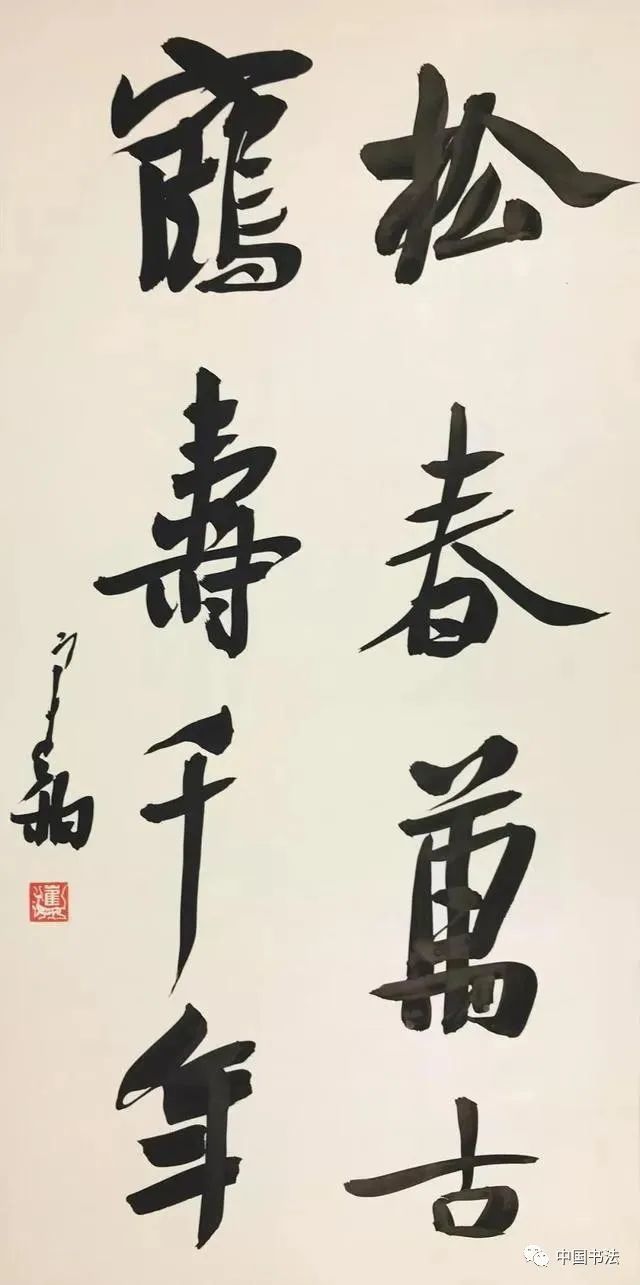 松春萬古
鶴壽千年
中国书法